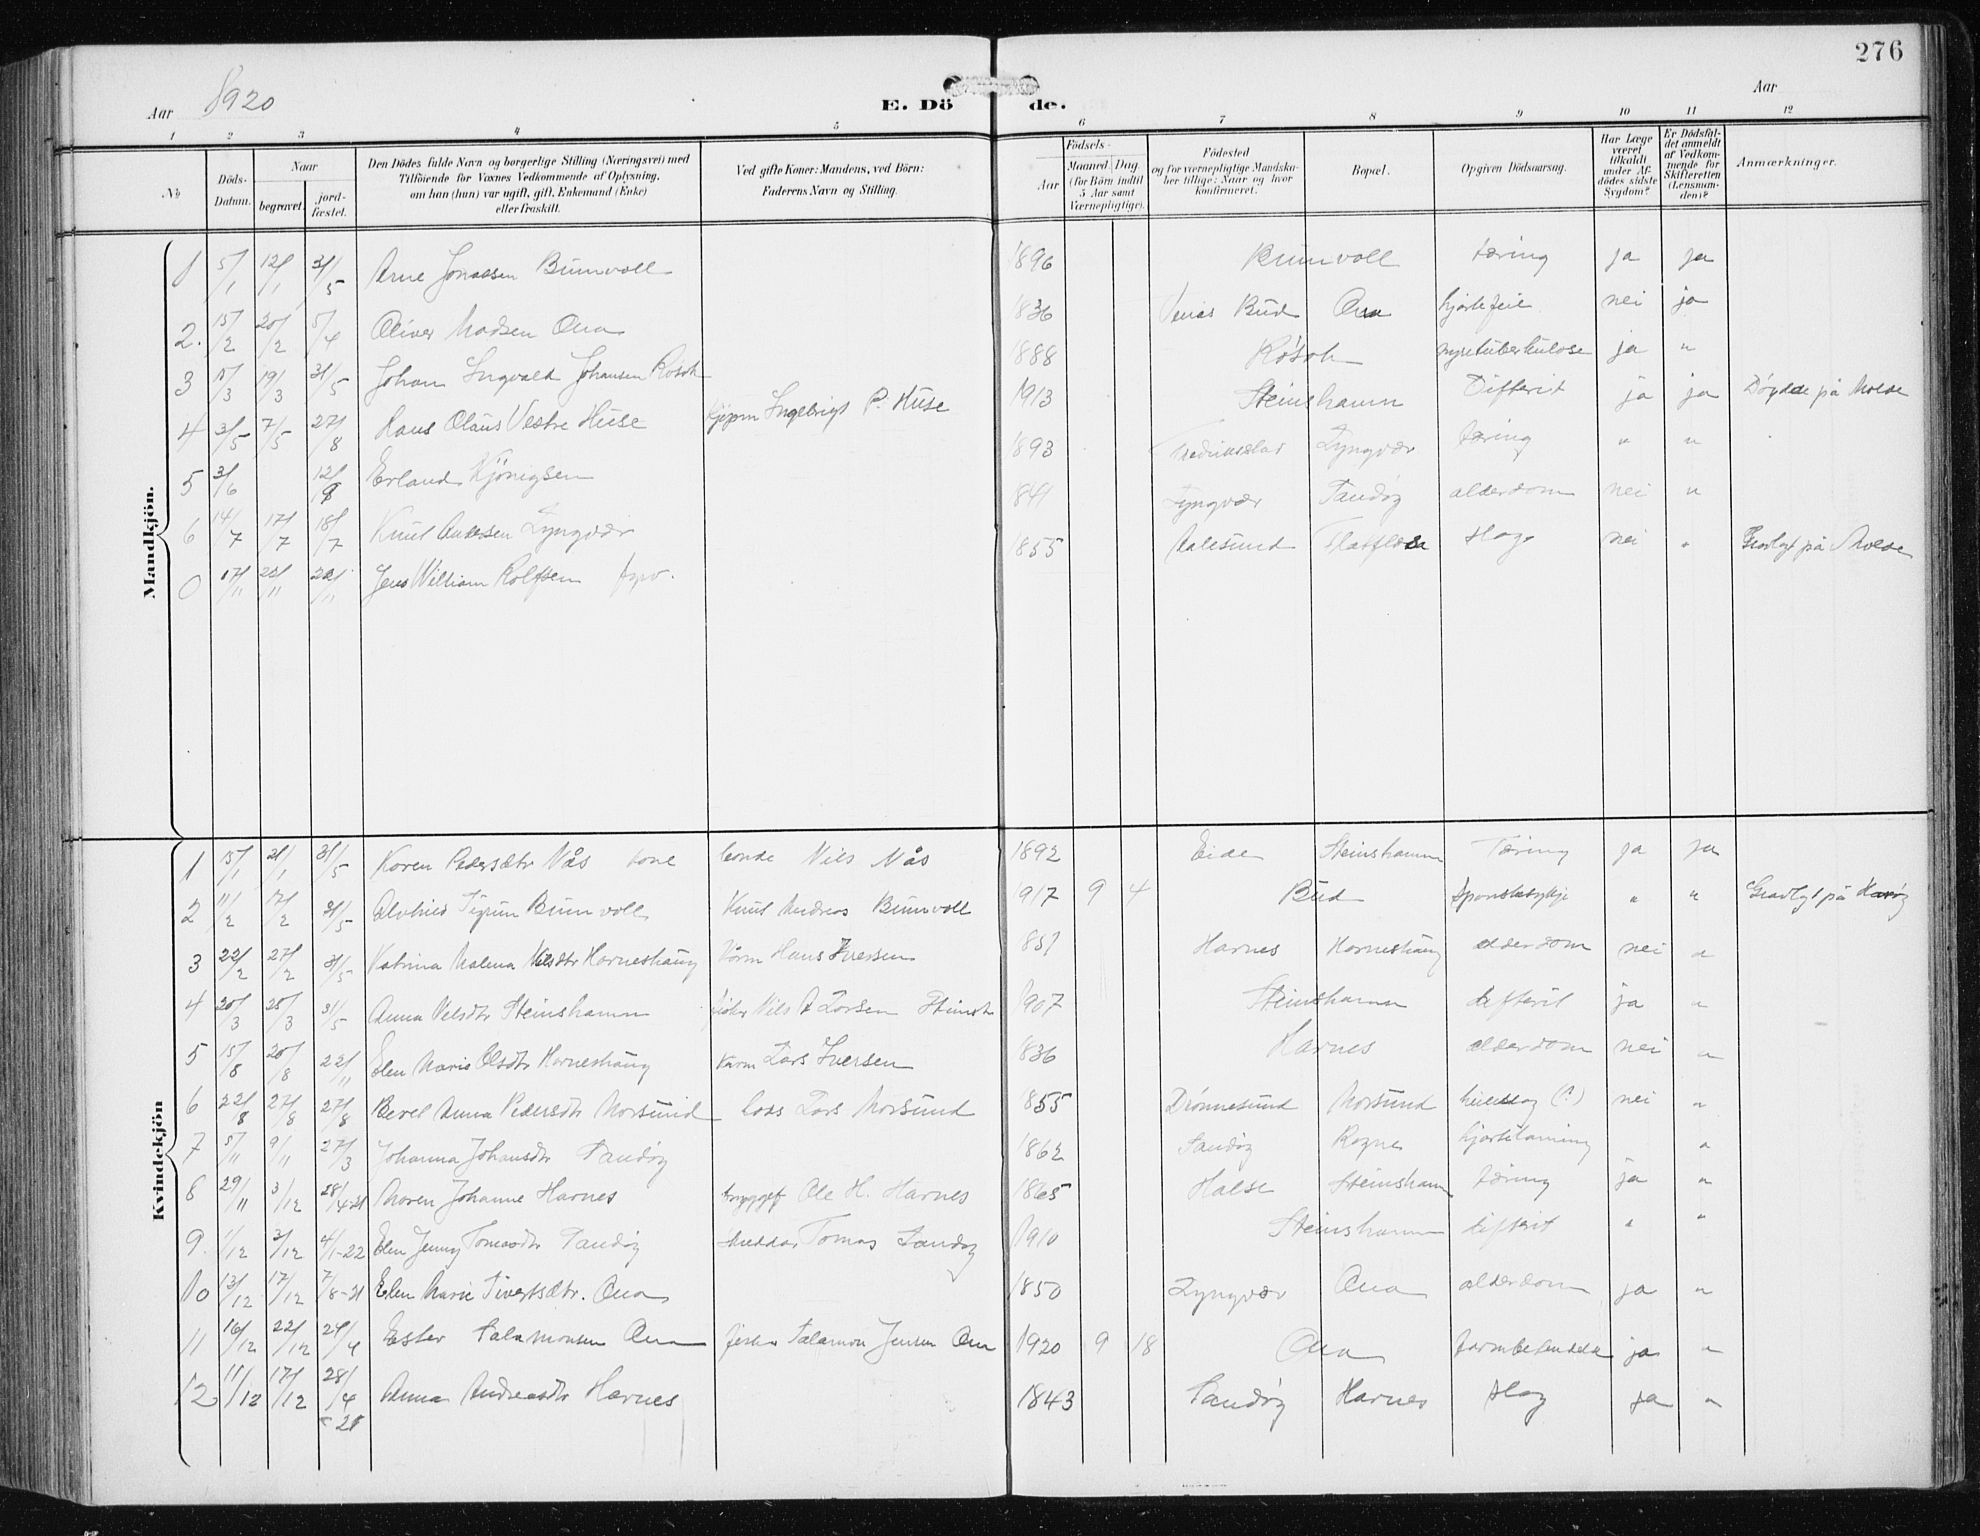 276
Aar 1920
E. Döde.
Aar
1 2 3 4 5 6 7 8 9 10 11 12
No
Döds-Datum.
Naar
begravet.
jord-fæstet.
Den Dödes fulde Navn og borgerlige Stilling (Næringsvei) med
Tilföiende for Voxnes Vedkommende af Oplysning,
om han (hun) var ugift, gift, Enkemand (Enke)
eller fraskilt.
Ved gifte Koner: Mandens, ved Börn:
Faderens Navn og Stilling.
Födsels-
Aar
Maaned Dag
(for Börn indtil
5 Aar samt
Værnepligtige).
Födested
og for værnepligtige Mandska-
ber tillige: Naar og hvor
konfirmeret.
Bopæl.
Opgiven Dödsaarsag.
Har Læge
været
tilkaldt
under Af-
dödes sidste
Sygdom?
Er Dödsfal-
det anmeldt
af Vedkom-
mende for
Skifteretten
(Lensman-
den)?
Anmærkninger.
Mandkjön.
1 5/1 12/1 31/5 Arne Jonassen Bumvoll 1896 Bumvoll tæring ja ja
2. 15/2 20/2 5/4 Oliver Madsen Ona 1836 Bud Ona hjertefeil nei ja
3 15/3 19/3 31/5 Johan Ingvald Johansen Røsok 1888 Røsok nyretuberkulose ja "
4 3/5 7/5 27/8 Hans Olaus Vestre Huse Ingebrigt P. Huse 1913 Steinshamn Difterit ja ja Døyde på Molde
5 3/6 12/9 Erland 1893 Lyngvær tæring " "
6 14/7 17/7 18/7 Knut Andersen Lyngvær 1841 Lyngvær Sandøy alderdom nei "
0 17/11 22/11 22/11 Jens William Rolfsen fyrv. 1855 Aalesund Flatflesa slag nei " Gravlagt på Molde
Kvindekjön
1 15/1 21/1 31/5 Karen Pedersdtr Nås kone bonde Nils Nås 1892 Eide Steinshamn Tæring ja ja
2 11/2 17/2 31/5 Bumvoll Knut Andreas Bumvoll 1917 9 4 Bud spanskesykje " " Gravlagt på Harøy
3 22/2 27/2 31/5 Katrina Malena Nilsdtr Harneshaug Hans Iversen 1837 Harnes Harneshaug alderdom nei "
4 20/3 25/3 31/5 Anna Nilsdtr Steinshamn fisker Nils A Larsen Steinsh 1907 Steinshamn difterit ja "
5 15/8 20/8 22/11 Elen Marie Olsdtr Harneshaug Lars Iversen 1836 Harnes alderdom nei "
6 22/8 27/8 27/8 Berel Anna Pedersdtr Morsund Lars Morsund 1855 Drønnesund Morsund (?) nei "
7 5/11 9/11 27/3 Johanna Johansdtr Sandøy 1862 Sandøy Rogne hjertelaming "
8 29/11 3/12 28/4-21 Maren Johanne Harnes Ole H. Harnes 1865 Halse Steinshamn tæring ja "
9. 1/12 3/12 4/1-22 Elen Jenny Tomasdtr Sandøy Tomas Sandøy 1910 Steinshamn difterit " "
10 13/12 17/12 7/8-21 Elen Marie Sivertsdtr. Ona 1850 Lyngvær Ona alderdom ja "
11 16/12 22/12 24/4 Ester Salamonsen Ona fisker Salamon Jensen Ona 1920 9 18 Ona ja "
12 11/12 17/12 28/4-21 Anna Andreasdtr Harnes 1843 Sandøy Harnes slag ja "